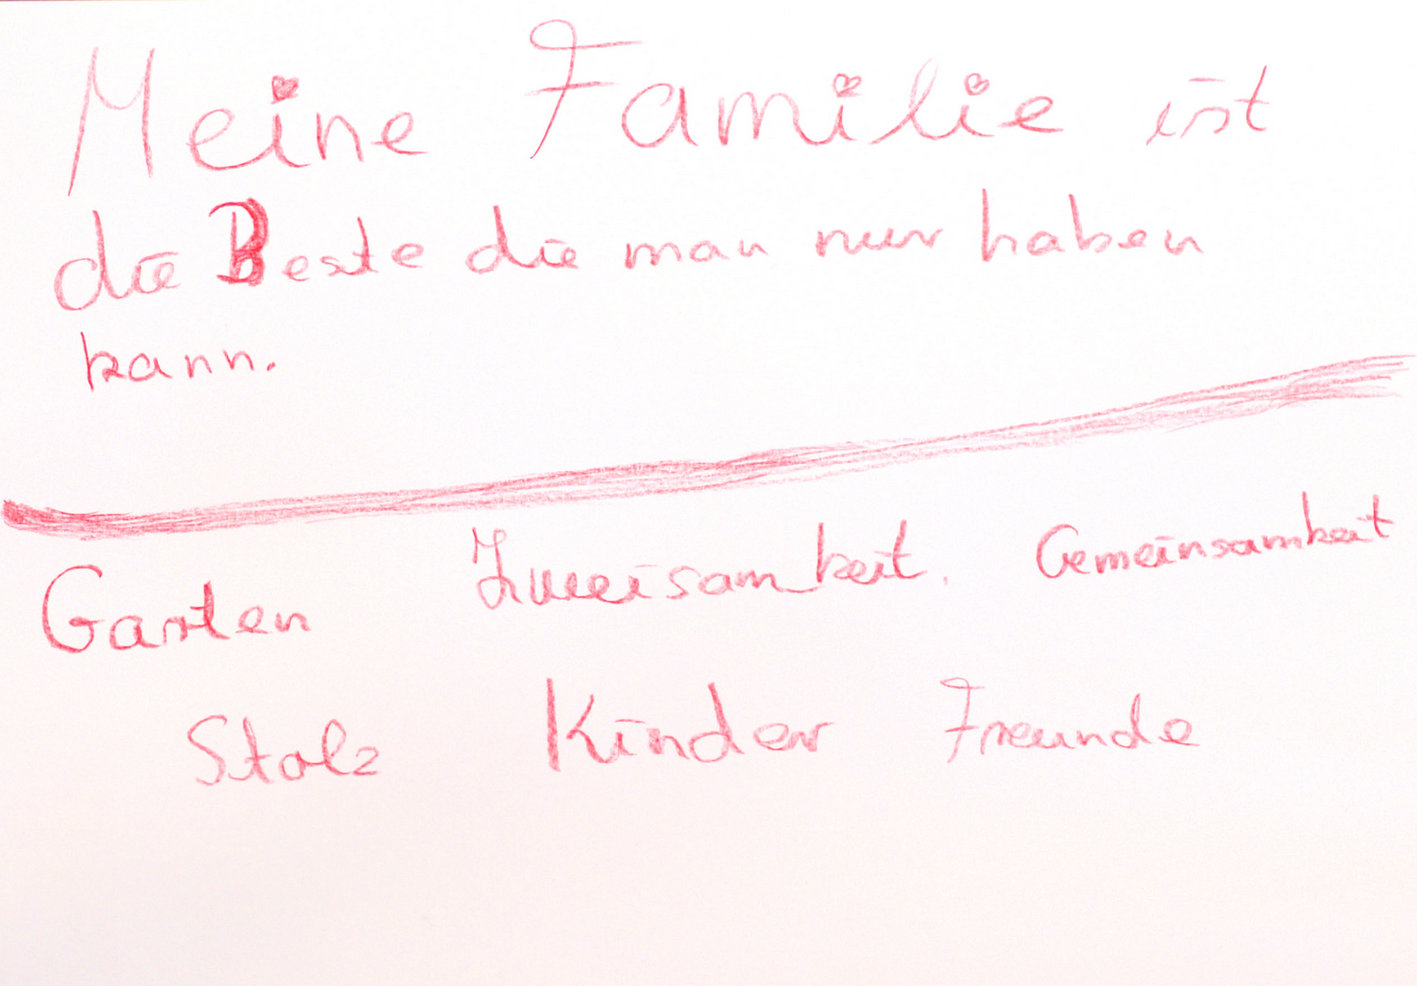 Meine Familie ist
die Beste die man nur haben
kann.
Garten Zweisamkeit. Gemeinsamkeit
Stolz Kinder Freunde